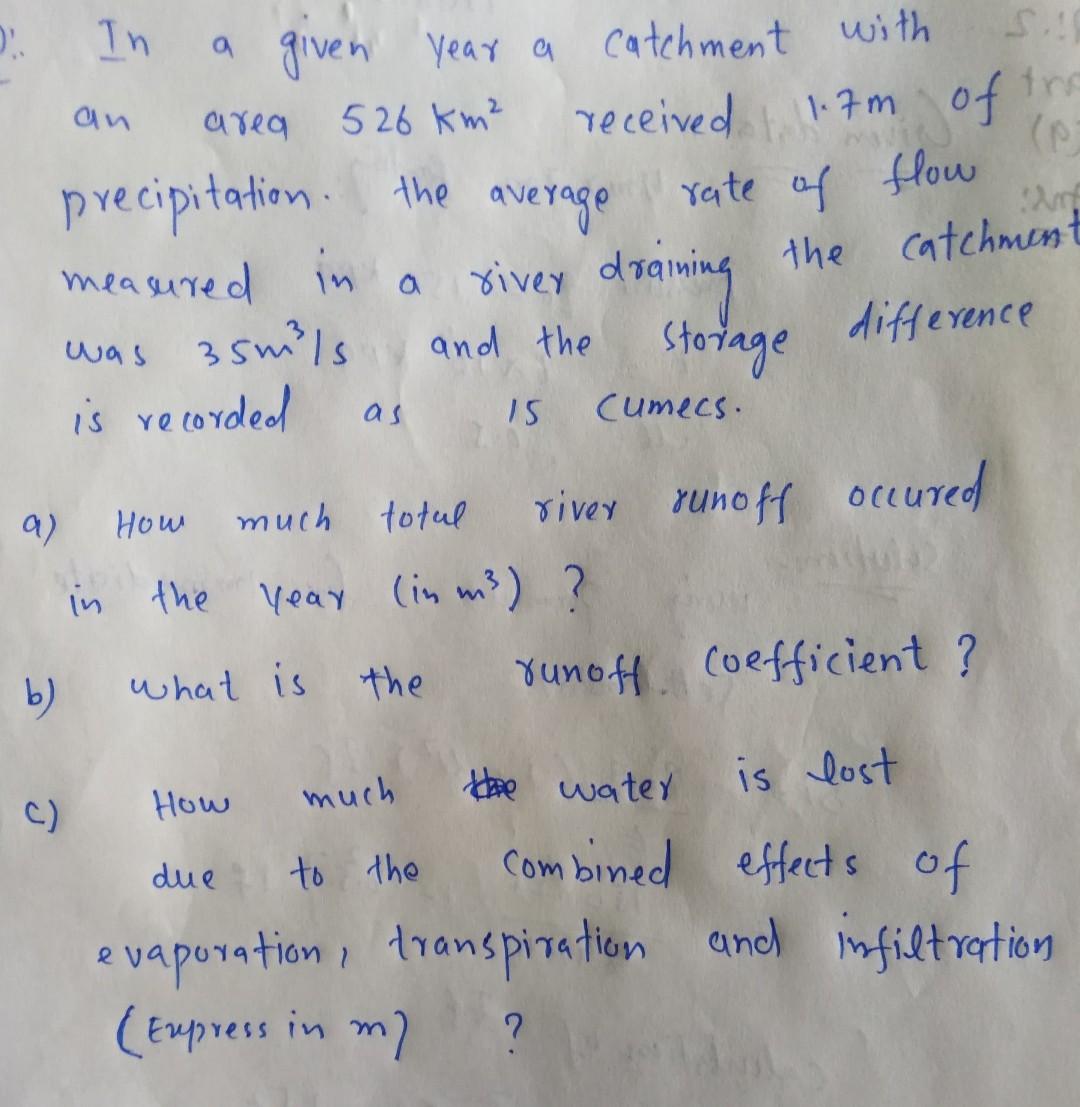 In a given year a catchment with
an area 526 km² received 1.7m of
precipitation. the average rate of flow
measured in a river draining the catchment
was 35m³/s and the storage difference
is recorded as 15 cumecs.
a) How much total river runoff occured
in the year (in m³) ?
b) what is the runoff coefficient ?
c) How much water is lost
due to the combined effects of
evaporation, transpiration and infiltration
(Express in m) ?